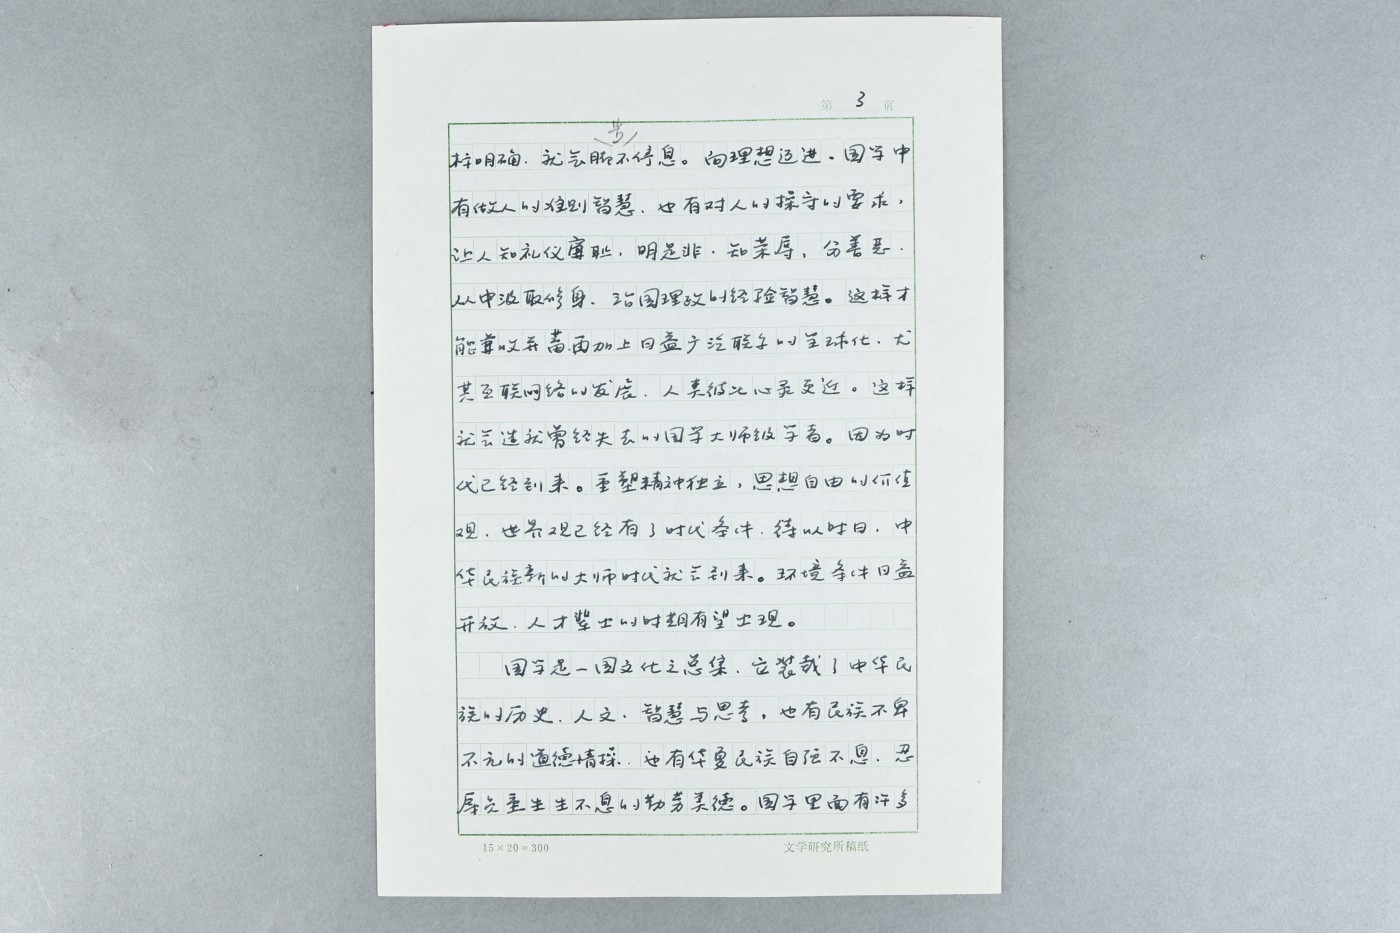 第 3 页
步
标明确，就会脚不停息。向理想迈进。国学中
有做人的准则智慧，也有对人的操守的要求，
让人知礼仪廉耻，明是非，知荣辱，分善恶，
从中汲取修身，治国理政的经验智慧。这样才
能兼收并蓄，再加上日益广泛联系的全球化，尤
其互联网络的发展，人类彼此心灵更近。这样
就会造就曾经失去的国学大师级学者。因为时
代已经到来。重塑精神独立，思想自由的价值
观，世界观已经有了时代条件，待以时日，中
华民族新的大师时代就会到来。环境条件日益
开放，人才辈出的时期有望出现。
国学是一国文化之总集，它装载了中华民
族的历史，人文，智慧与思考，也有民族不卑
不亢的道德情操，也有华夏民族自强不息，忍
辱负重生生不息的勤劳美德。国学里面有许多
15×20=300
文学研究所稿纸